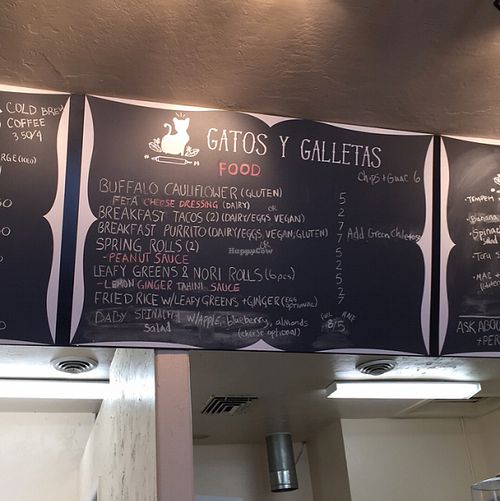 COLD BREW
COFFEE
3.50/4
GATOS Y GALLETAS
FOOD
Chips + Guac 6
BUFFALO CAULIFLOWER (GLUTEN) 5
FETA CHEESE DRESSING (DAIRY)
BREAKFAST TACOS (2) (DAIRY/EGGS OR VEGAN) 2
BREAKFAST BURRITO (DAIRY/EGGS, VEGAN, GLUTEN) 7 Add Green Chile
SPRING ROLLS (2) 5
- PEANUT SAUCE
LEAFY GREENS & NORI ROLLS (6 pcs)
- LEMON GINGER TAHINI SAUCE
FRIED RICE W/ LEAFY GREENS + GINGER (EGG OPTIONAL) 7
BABY SPINACH W/ APPLE, blueberry, almonds
Salad (cheese optional)
FULL HALF
8/5
HappyCow
TEMPEH
Banana
Spinach
Salad
Tofu
MAC +
ASK ABOU